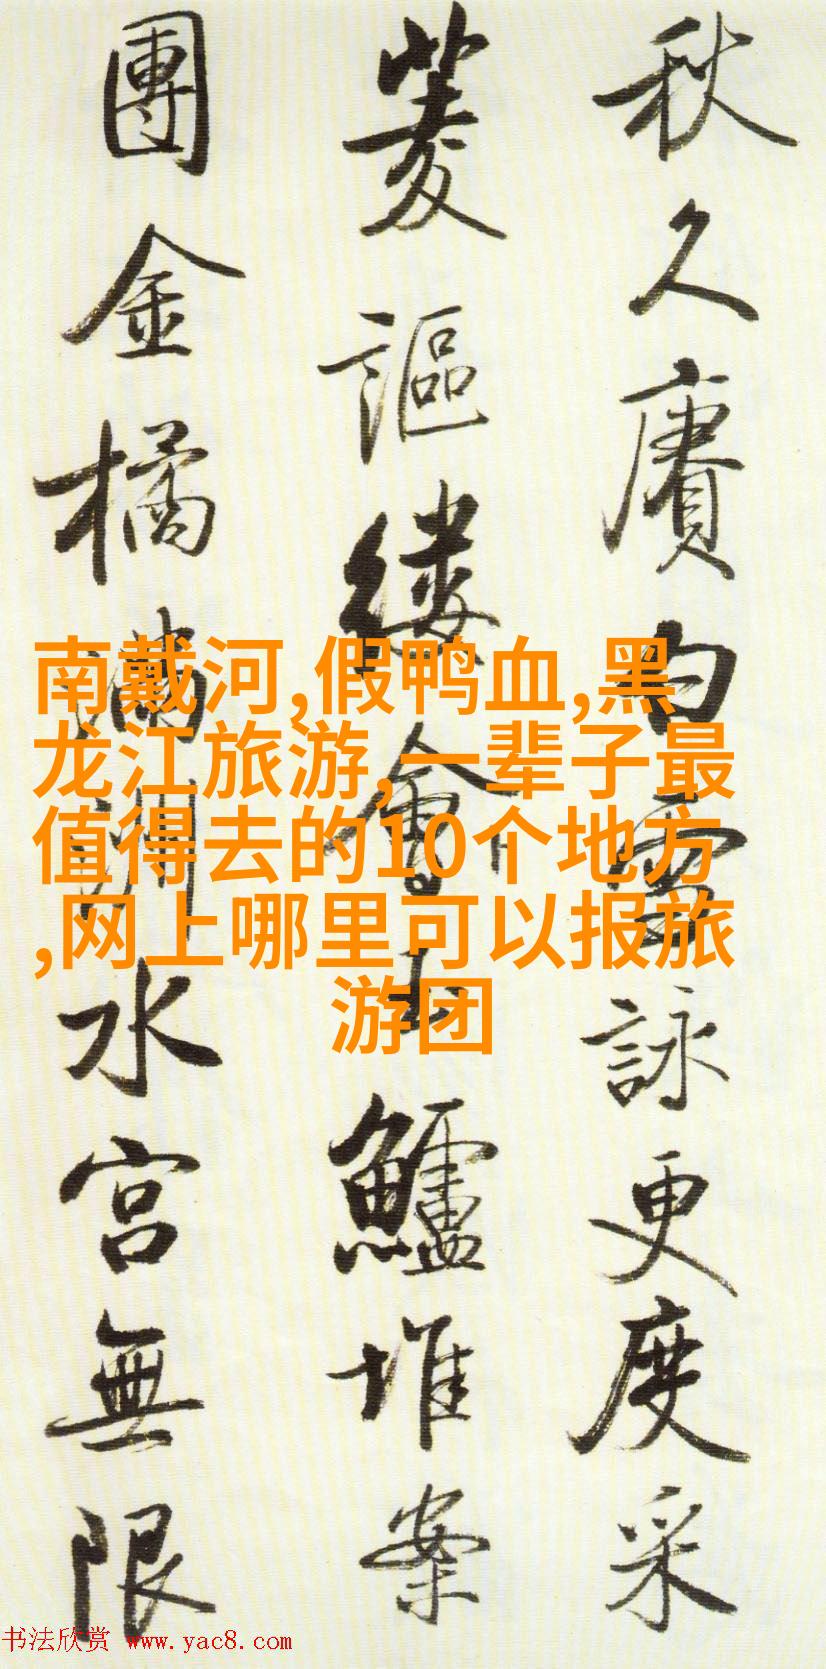 秋久賡白雪詠更度采
菱謳縷會玉鱸堆案
團金橘滿洲水宮無限
南戴河,假鸭血,黑
龙江旅游,一辈子最
值得去的10个地方
,网上哪里可以报旅
游团
书法欣赏 www.yac8.com